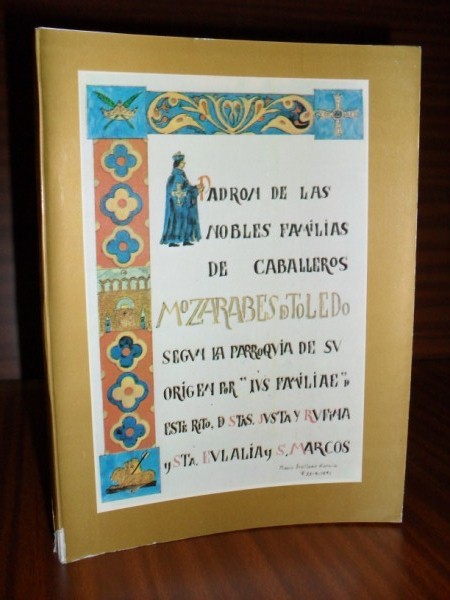 PADRON DE LAS
NOBLES FAMILIAS
DE CABALLEROS
MOZARABES D TOLEDO
SEGUN LA PARROQUIA DE SU
ORIGEN POR "IUS FAMILIAE" D
ESTE RITO, D STAS. JUSTA Y RUFINA
Y STA. EULALIA Y S. MARCOS